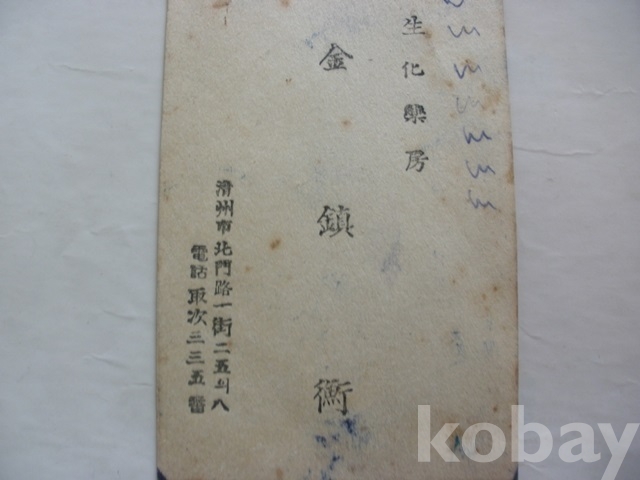 生化藥房
金鎭衡
淸州市北門路一街二五의八
電話取次三三五番
kobay